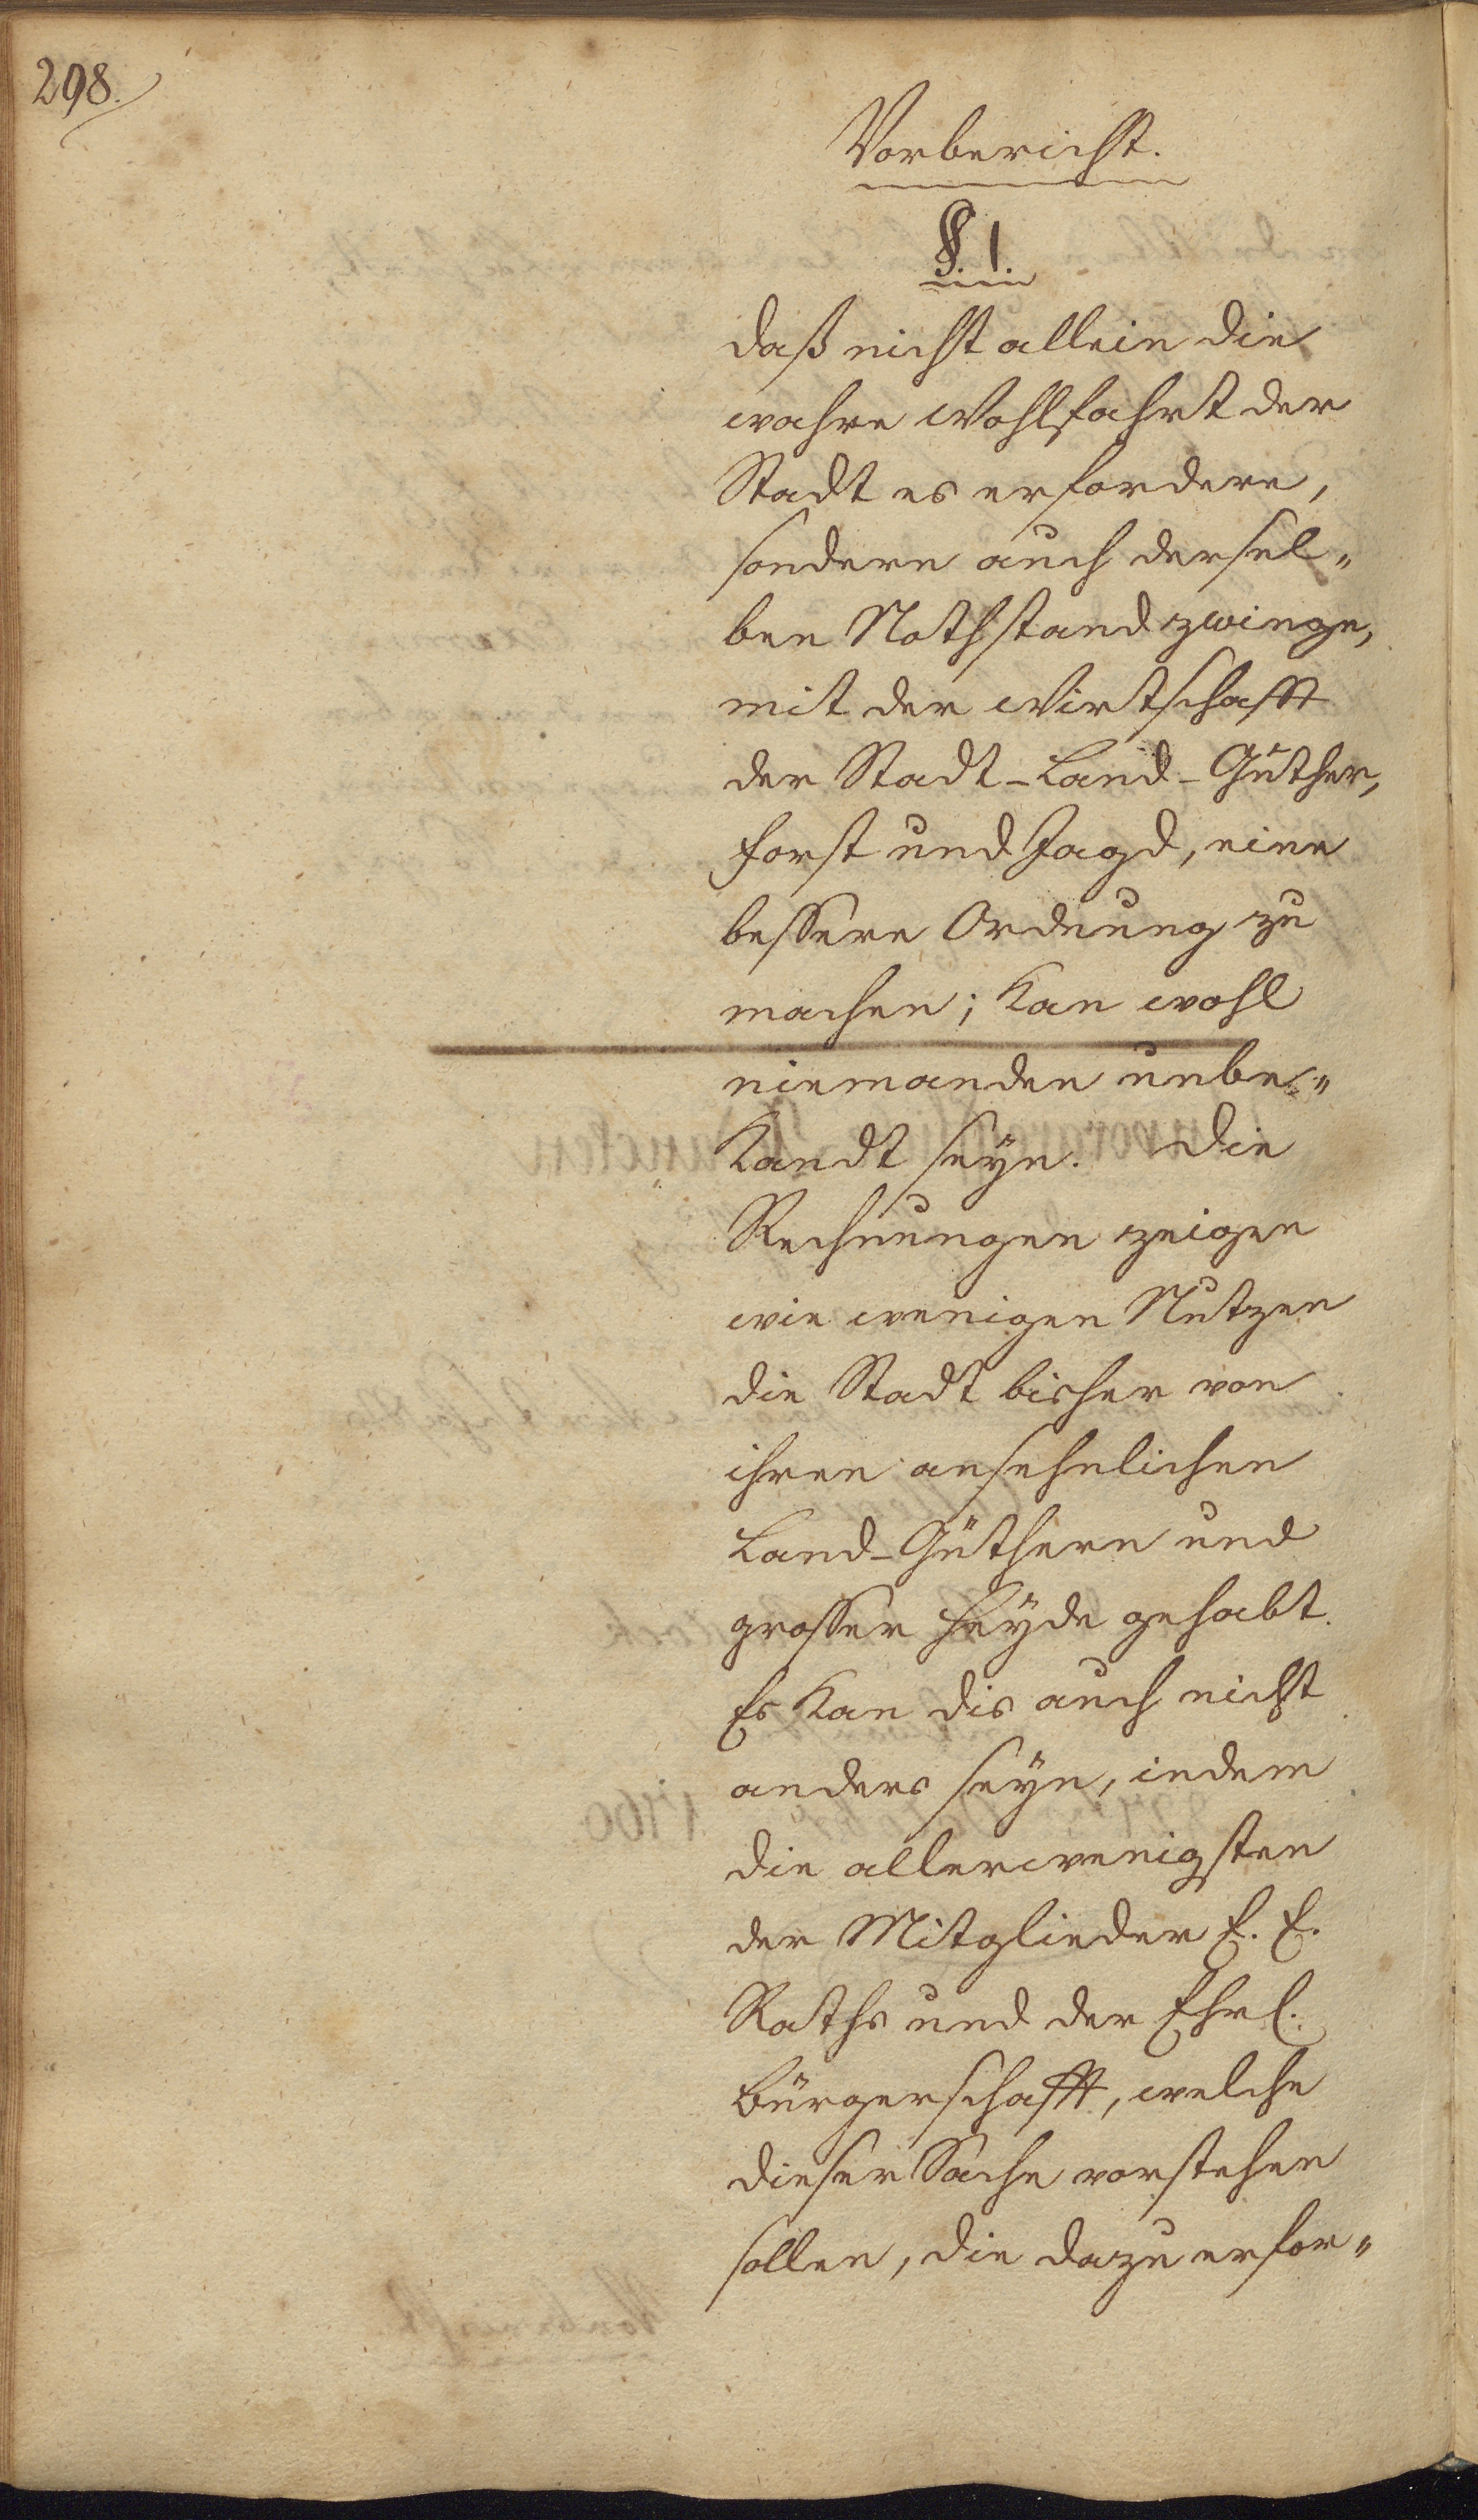 298.
Vorbericht.
§. 1.
Daß nicht allein die
wahre Wohlfahrt der
Stadt es erfordere,
sondern auch dersel„
ben Nothstand zwinge,
mit der Wirtschafft
der Stadt-Land-Güther,
Forst und Jagd, eine
bessere Ordnung zu
machen; kan wohl
niemanden unbe„
kandt seyn. Die
Rechnungen zeigen
wie wenigen Nutzen
die Stadt bisher von
ihren ansehnlichen
Land-Güthern und
grosser Heyde gehabt.
Es kan dis auch nicht
anders seyn, indem
die allerwenigsten
der Mitglieder E. E.
Raths und der Ehrl.
Bürgerschafft, welche
dieser Sache vorstehen
sollen, die dazu erfor„